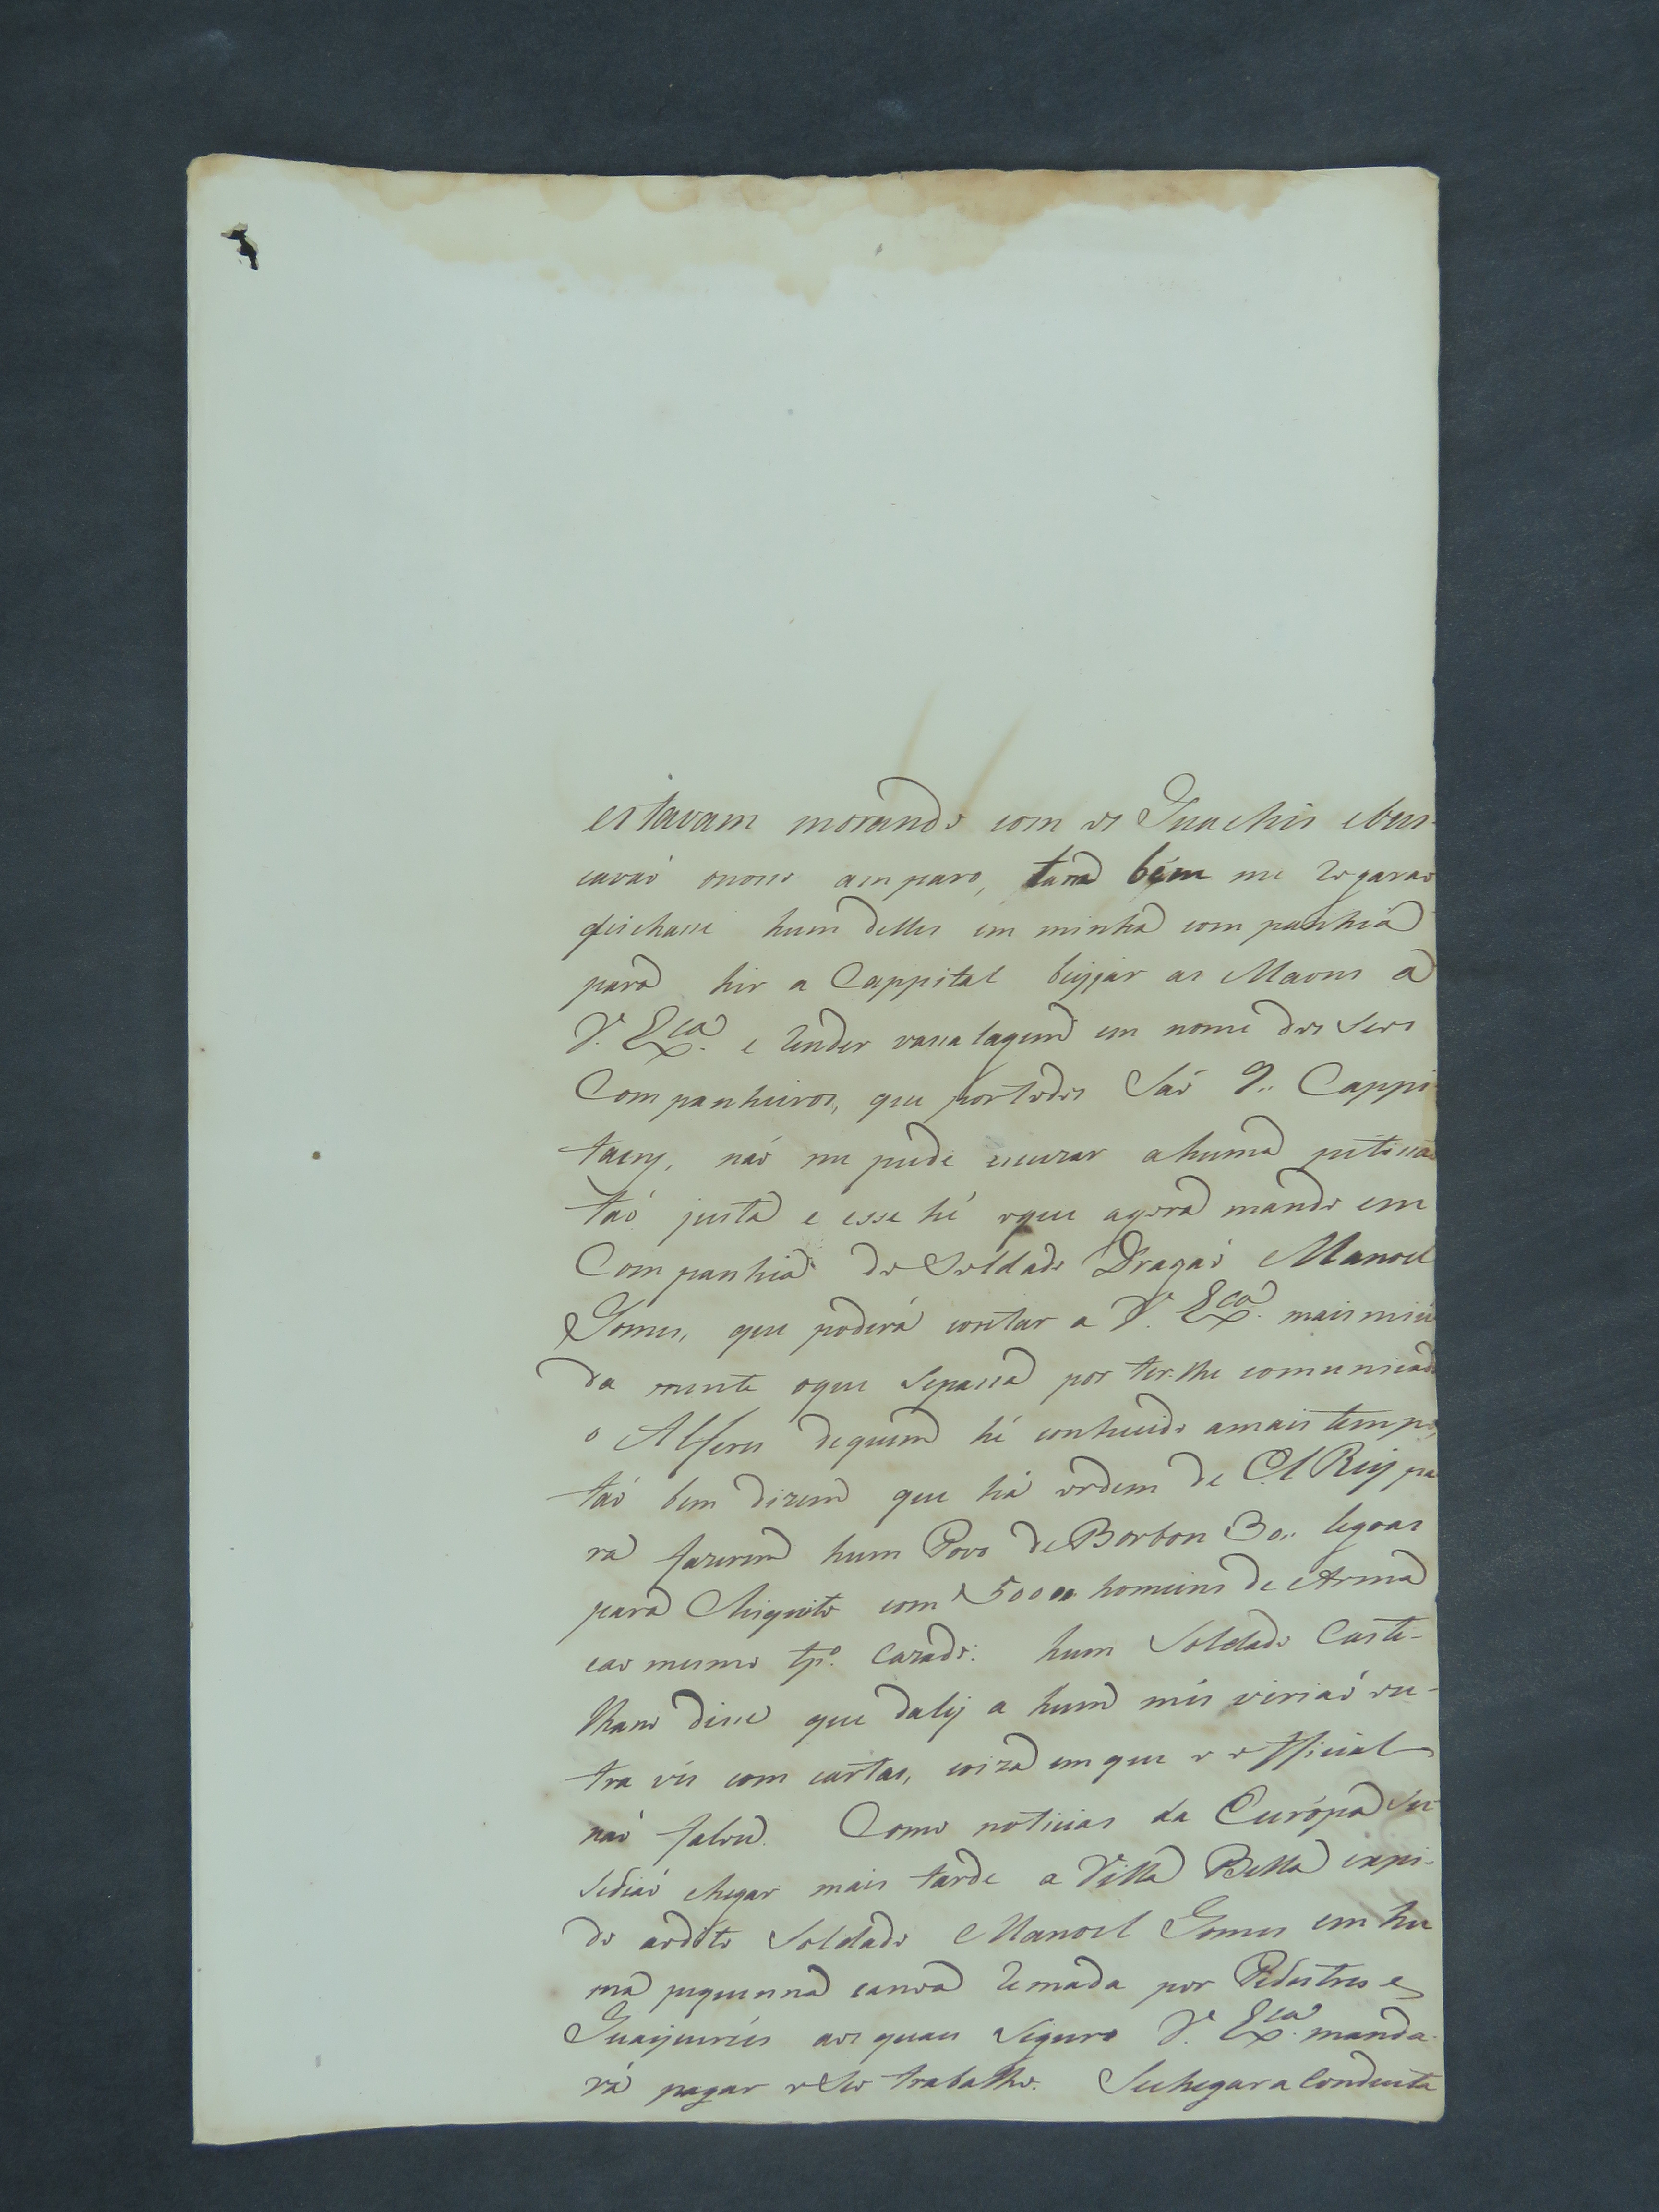 estavam morando com os Guachis ebus-
cavaõ onosso amparo, tambem me rogaraõ
deichasse hum delles em minha companhia
para hir a Cappital beyjar as Maons a
V. Ex.cia e render vassalagem em nome dos seos
Companheiros, que por todos Saõ 9,, Cappi
taens, naõ me pude escuzar ahuma petissaõ
taõ justa e esse hé oque agora mando em
Companhia do Soldado Dragaõ Manoel
Gomes, que poderá contar a V. Ex.cia mais miu
da mente oque Sepassa por ter-lhe comunicado
o Alferes dequem hé conhecido amais tempo,
taõ bem dizem que há ordem de El Rey pa
ra fazerem hum Povo de Borbon 30,, legoas
para Chiquito com 5000 homeins de Arma
eao mesmo tp.o Cazado: hum Soldado Caste-
lhano disse que daly a hum més viriaõ ou-
tra vés com cartas, coiza emque o official
naõ falou. Como noticias da Európa Su
sediaõ chegar mais tarde a Villa Bella expi-
do aodito Soldado Manoel Gomes em hu
ma piquenna canoa remada por Pedestres e
Guaycurús aos quaes Seguro V. Ex.cia manda-
rá pagar oSeo trabalho. Sechegar a Conducta